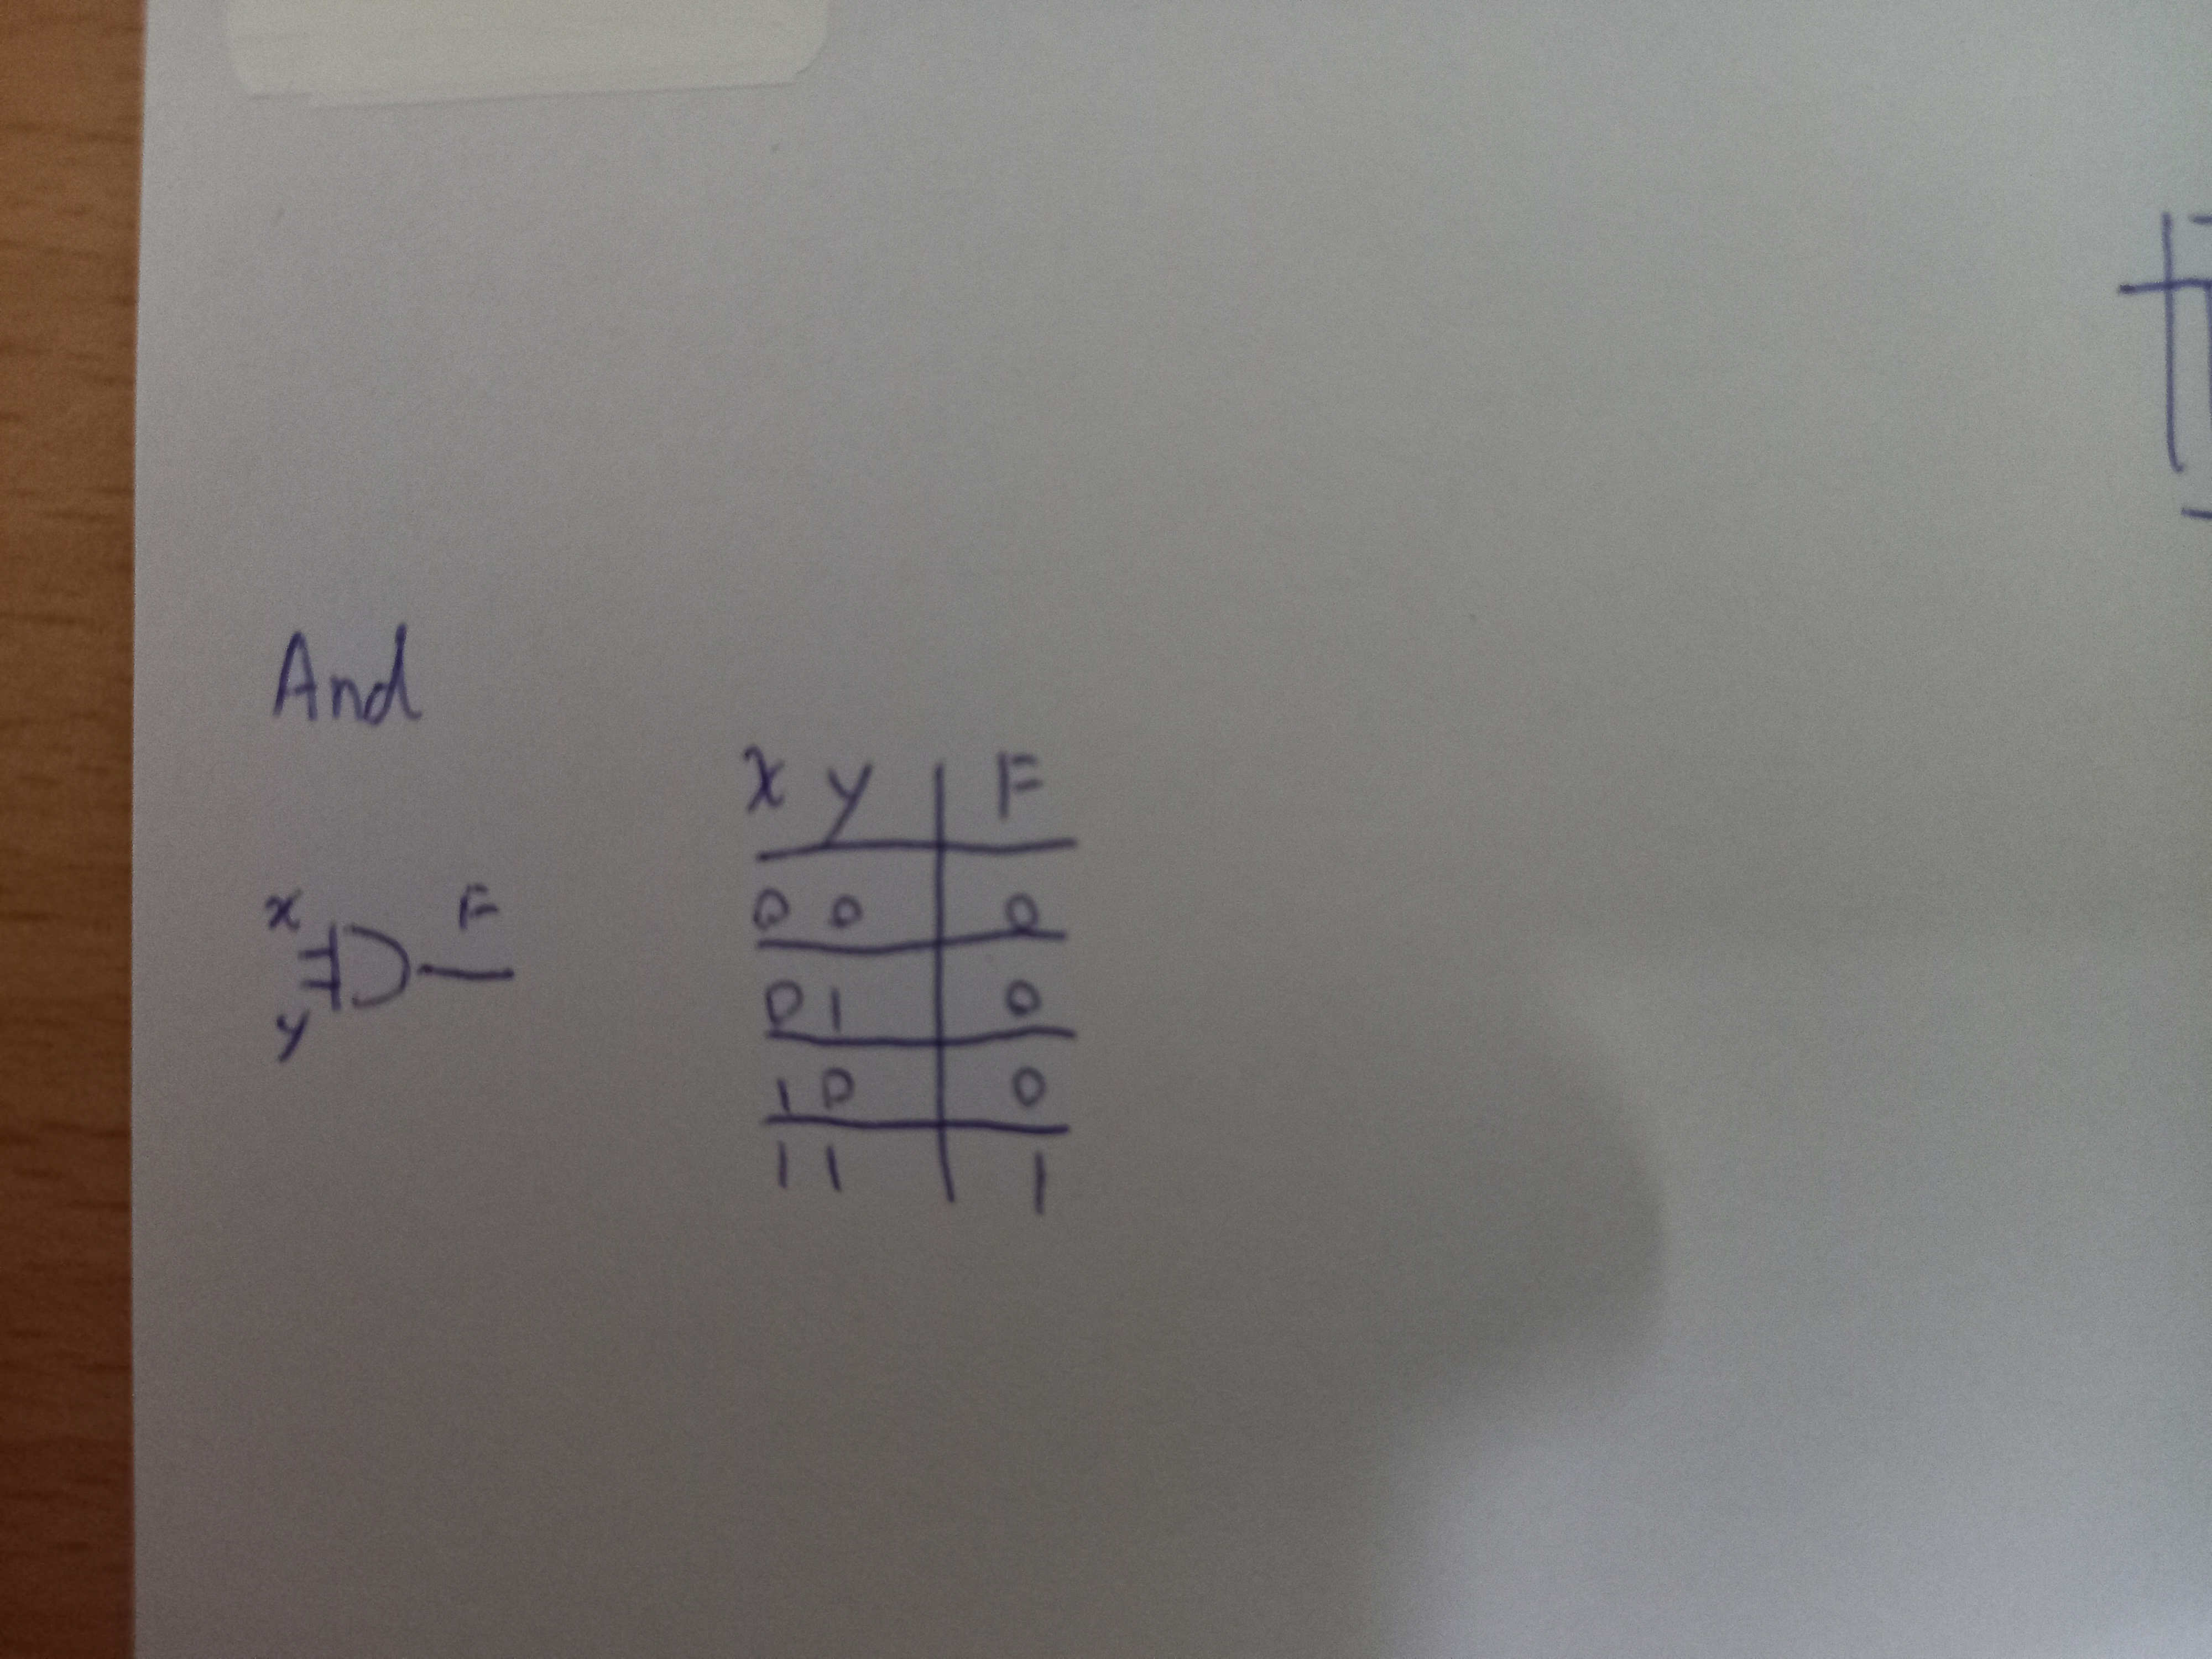 And
x F
y
x y F
0 0 0
0 1 0
1 0 0
1 1 1